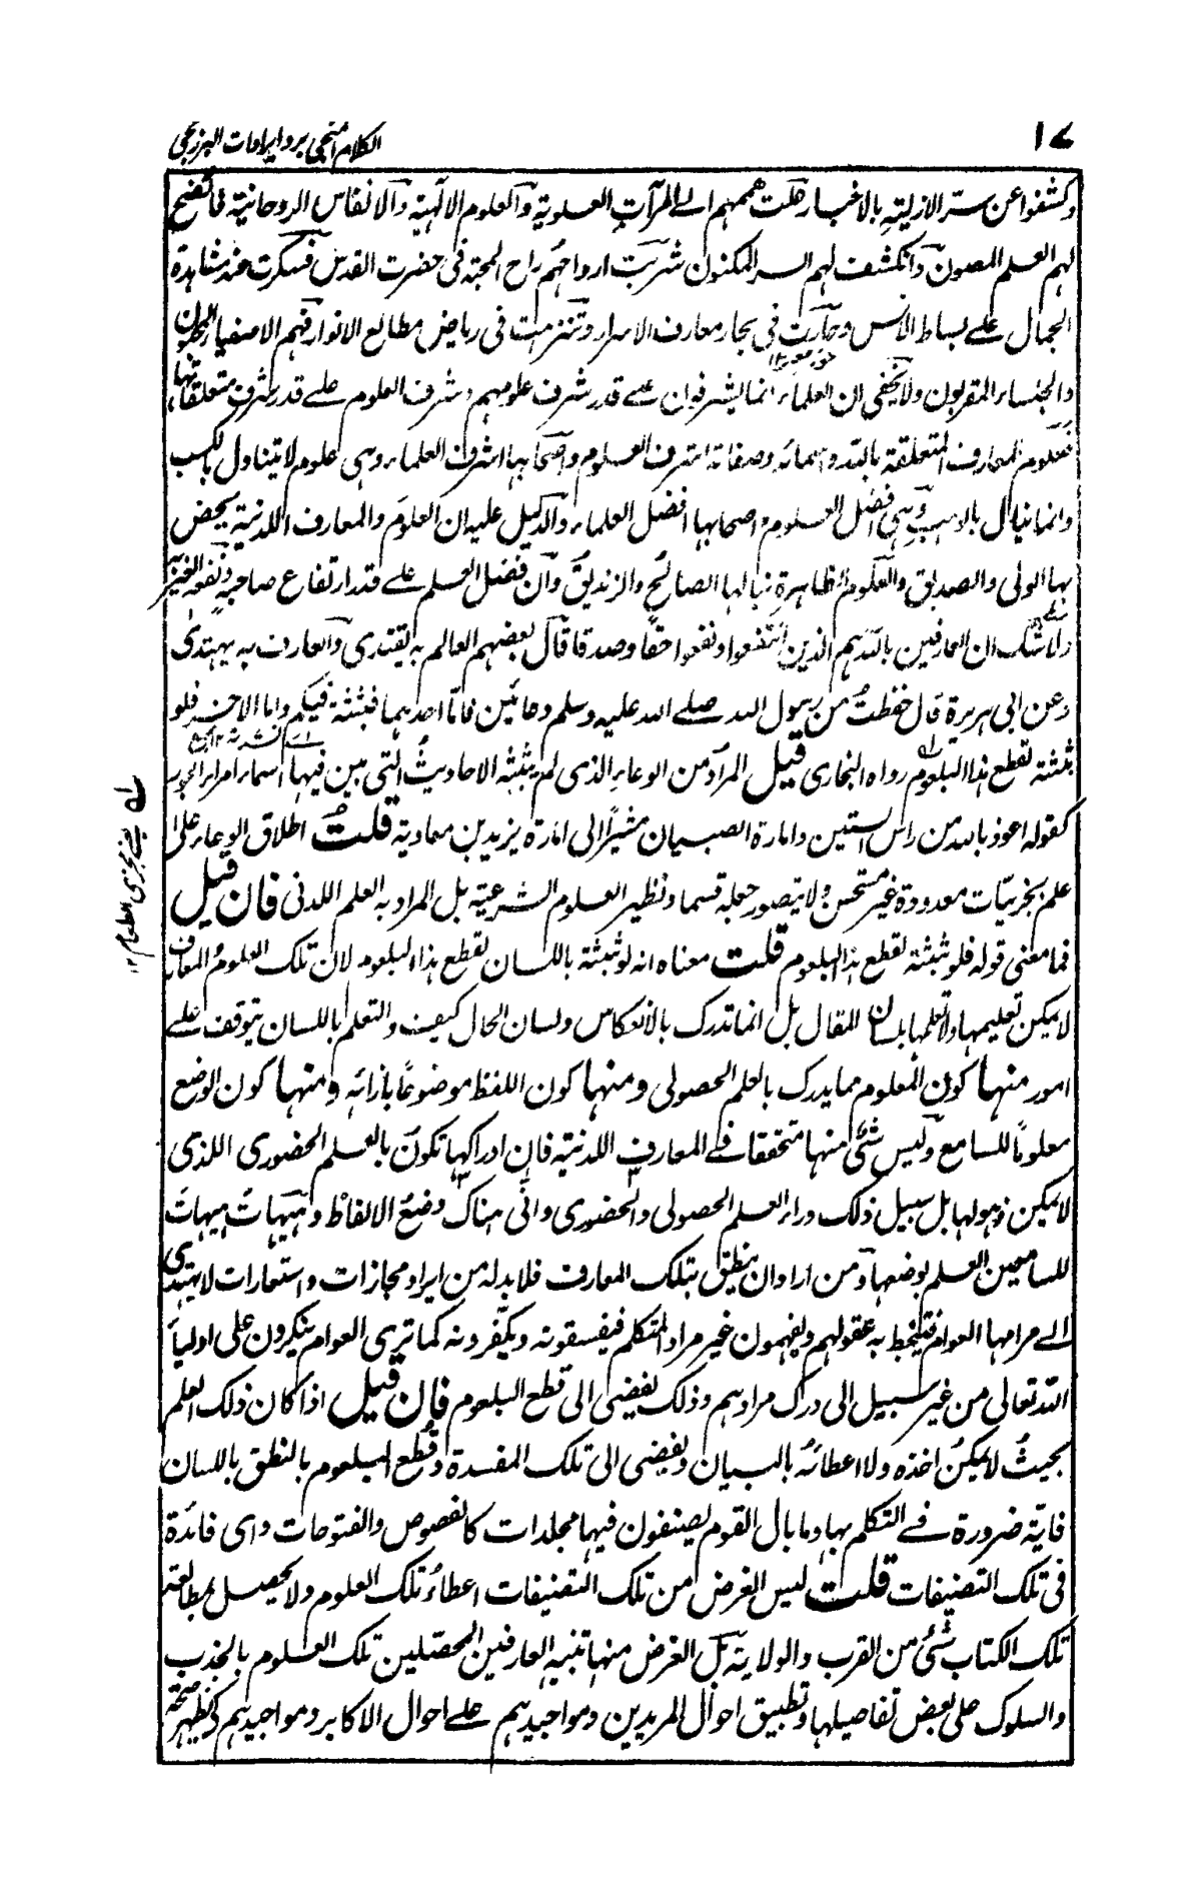 ١٧
الكلام المنجى برد ايرادات البرزنجى
وكشفوا عن ستر الازلية بالاخبار رحلت هممهم الى المرآت العلوية والعلوم الالهية والانفاس الروحانية فاتضح
لهم العلم المصون وانكشف لهم السر المكنون شربت ارواحهم راح المحبة فى حضرت القدس فسكرت عند مشاهدة
الجمال على بساط الانس وحارت فى بحار معارف الاسرار وتنزهت فى رياض مطالع الانوار فهم الاصفياء
والجلساء المقربون ولا يخفى ان العلماء انما يشرفون على قدر شرف علومهم وشرف العلوم على قدر شرف متعلقاتها
فعلوم المعارف المتعلقة بالله واسمائه وصفاته اشرف العلوم واصحابها اشرف العلماء وهى علوم لا يتناول بالكسب
وانما ينال بالوهب وهى افضل العلوم واصحابها افضل العلماء والدليل عليه ان العلوم والمعارف اللدنية يختص
بها الولى والصديق والعلوم الظاهرة ينالها الصالح والزنديق وان فضل العلم على قدر ارتفاع صاحبه ونفعه لغيره
ولا شك ان العارفين بالله هم الذين انتفعوا ونفعوا حقا وصدقا قال بعضهم العالم به يقتدى والعارف به يهتدى
وعن ابى هريرة قال حفظت من رسول الله صلى الله عليه وسلم وعائين فاما احدهما فبثثته فيكم واما الاخر فلو
بثثته لقطع هذا البلعوم رواه البخارى قيل المراد من الوعاء الذى لم يبثثه الاحاديث التى بين فيها اسماء امراء الجور
كقوله اعوذ بالله من راس الستين وامارة الصبيان مشيرًا الى امارة يزيد بن معاوية قلت اطلاق الوعاء على
علم بجزئيات معدودة غير مستحسن ولا يتصور جعله قسما ونظير العلوم الشرعية بل المراد به العلم اللدنى فان قيل
فما معنى قوله فلو بثثته لقطع هذا البلعوم قلت معناه انه لو بثثته باللسان لقطع هذا البلعوم لان تلك العلوم والمعارف
لا يمكن تعليمها ولا تعلمها بلسان المقال بل انما تدرك بالانعكاس ولسان الحال كيف والتعلم باللسان يتوقف على
امور منها كون المعلوم مما يدرك بالعلم الحصولى ومنها كون اللفظ موضوعًا بازائه ومنها كون الوضع
معلومًا للسامع وليس شئ منها متحققا فى المعارف اللدنية فان ادراكها تكون بالعلم الحضورى اللذى
لا يمكن ذهولها بل سبيل ذلك وراء العلم الحصولى والحضورى وانى هناك وضع الالفاظ وهيهات هيهات
للسامعين العلم بوضعها ومن اراد ان ينطق بتلك المعارف فلا بد له من ايراد مجازات واستعارات لا يهتدى
الى مرامها العوام فيتخبط به عقولهم ويفهمون غير مراد المتكلم فيفسقونه ويكفرونه كما ترى العوام ينكرون على اولياء
الله تعالى من غير سبيل الى درك مرادهم وذلك يفضى الى قطع البلعوم فان قيل اذا كان ذلك العلم
بحيث لا يمكن اخذه ولا اعطائه بالبيان ويفضى الى تلك المفسدة وقطع البلعوم بالنطق باللسان
فاية ضرورة فى التكلم بها وما بال القوم يصنفون فيها مجلدات كالفصوص والفتوحات واى فائدة
فى تلك التصنيفات قلت ليس الغرض من تلك التصنيفات اعطاء تلك العلوم ولا يحصل بمطالعة
تلك الكتاب شئ من القرب والولاية بل الغرض منها تنبيه العارفين المحصلين تلك العلوم بالجذب
والسلوك على بعض تفاصيلها وتطبيق احوال المريدين ومواجيدهم على احوال الاكابر ومواجيدهم كى يظهر صحة
له يعنى مجرى الطعام ١٢